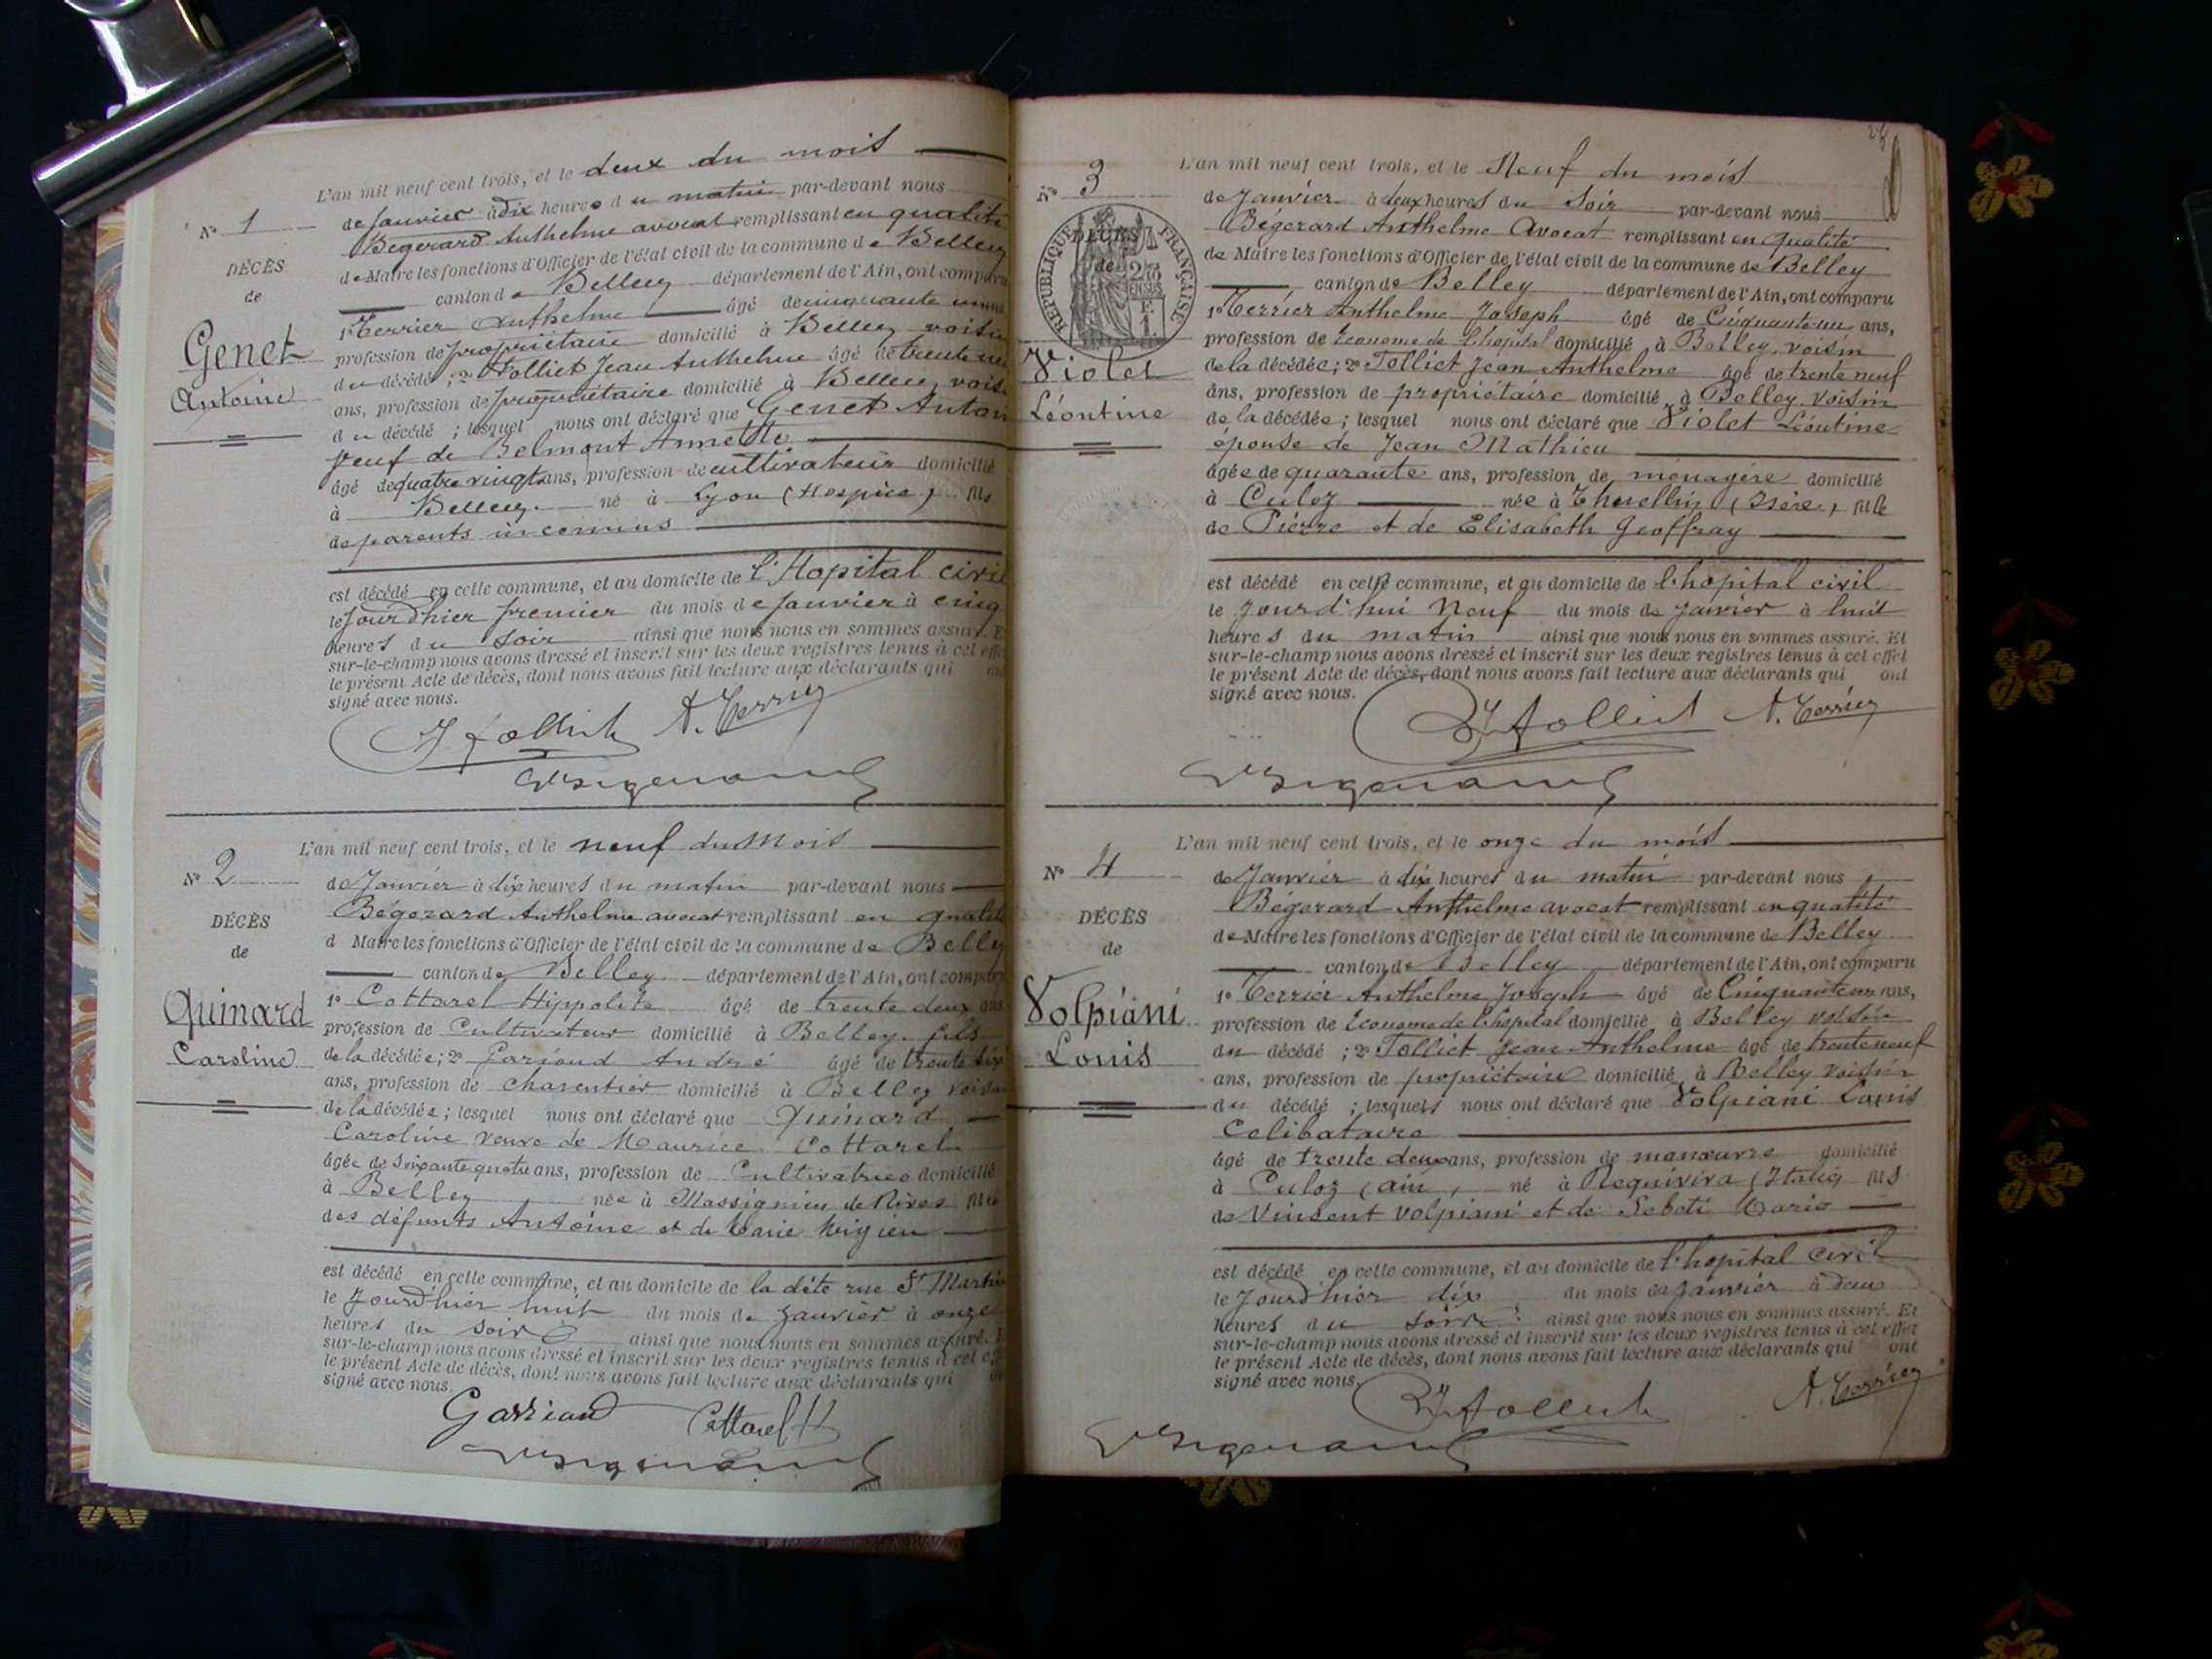 L'an mil neuf cent trois, et le deux du mois
N° 1
de Janvier à dix heures du matin par-devant nous
Bégerard Anthelme avocat remplissant en qualité
DÉCÈS
de Maire les fonctions d'Officier de l'état civil de la commune de Belley
de
canton de Belley département de l'Ain, ont comparu
1° Terrier Anthelme âgé de cinquante un ans
Genet
profession de propriétaire domicilié à Belley voisin
Antoine
du décédé ; 2° Tolliet Jean Anthelme âgé de trente neuf
ans, profession de propriétaire domicilié à Belley, voisin
du décédé ; lesquel nous ont déclaré que Genet Antoin
Veuf de Belmont Annette
âgé de quatre vingt ans, profession de cultivateur domicilié
à Belley né à Lyon (Hospice) fils
de parents inconnus
est décédé en cette commune, et au domicile de l'Hopital civil
le Jourd'hier premier du mois de Janvier à cinq
heures du soir ainsi que nous nous en sommes assuré. Et
sur-le-champ nous avons dressé et inscrit sur les deux registres tenus à cet effet
le présent Acte de décès, dont nous avons fait lecture aux déclarants qui ont
signé avec nous.
J Tolliet A. Terrier
L'an mil neuf cent trois, et le neuf du Mois
N° 2
de Janvier à dix heures du matin par-devant nous
Bégerard Anthelme avocat remplissant en qualité
DÉCÈS
d Maire les fonctions d'Officier de l'état civil de la commune de Belley
de
canton de Belley département de l'Ain, ont comparu
Quinard
1° Cottarel Hippolite âgé de trente deux ans
profession de Cultivateur domicilié à Belley fils
Caroline
de la décédée ; 2° Garioud André âgé de trente six
ans, profession de charentier domicilié à Belley voisin
de la décédée ; lesquel nous ont déclaré que Quinard
Caroline veuve de Maurice Cottarel
âgée de soixante quatre ans, profession de Cultivatrice domicilié
à Belley née à Massignieu de Rives fille
des défunts Antoine et de Marie
est décédé en cette commune, et au domicile de la dite rue St Martin
le Jourd'hier huit du mois de Janvier à onze
heures du soir ainsi que nous nous en sommes assuré. Et
sur-le-champ nous avons dressé et inscrit sur les deux registres tenus à cet effet
le présent Acte de décès, dont nous avons fait lecture aux déclarants qui ont
signé avec nous.
Garrioud Cottarel H
28
L'an mil neuf cent trois, et le Neuf du mois
N° 3
de Janvier à deux heures du Soir par-devant nous
Bégerard Anthelme Avocat remplissant en qualité
RÉPUBLIQUE FRANÇAISE
DÉCÈS
de
de Maire les fonctions d'Officier de l'état civil de la commune de Belley
canton de Belley département de l'Ain, ont comparu
1° Terrier Anthelme Joseph âgé de Cinquante un ans,
profession de Econome de l'hopital domicilié à Belley, voisin
Violet
de la décédée ; 2° Tolliet Jean Anthelme âgé de trente neuf
Léontine
ans, profession de propriétaire domicilié à Belley, voisin
de la décédée ; lesquel nous ont déclaré que Violet Léontine
épouse de Jean Mathieu
âgée de quarante ans, profession de ménagère domicilié
à Culoz née à Thuellin (Isère), fille
de Pierre et de Elisabeth Geoffray
est décédé en cette commune, et au domicile de l'hopital civil
le Jourd'hui Neuf du mois de Janvier à huit
heures du matin ainsi que nous nous en sommes assuré. Et
sur-le-champ nous avons dressé et inscrit sur les deux registres tenus à cet effet
le présent Acte de décès, dont nous avons fait lecture aux déclarants qui ont
signé avec nous.
J Tolliet A. Terrier
L'an mil neuf cent trois, et le onze du mois
N° 4
de Janvier à dix heures du matin par-devant nous
Bégerard Anthelme avocat remplissant en qualité
DÉCÈS
de Maire les fonctions d'Officier de l'état civil de la commune de Belley
de
canton de Belley département de l'Ain, ont comparu
Volpiani
1° Terrier Anthelme Joseph âgé de Cinquante un ans,
profession de Econome de l'hopital domicilié à Belley voisin
Louis
du décédé ; 2° Tolliet Jean Anthelme âgé de trente neuf
ans, profession de propriétaire domicilié à Belley voisin
du décédé ; lesquels nous ont déclaré que Volpiani Louis
Celibataire
âgé de trente deux ans, profession de manœuvre domicilié
à Culoz (ain), né à Requivira (Italie) fils
de Vincent Volpiani et de Sebeti Marie
est décédé en cette commune, et au domicile de l'hopital civil
le Jourd'hier dix du mois de Janvier à deux
heures du soir ainsi que nous nous en sommes assuré. Et
sur-le-champ nous avons dressé et inscrit sur les deux registres tenus à cet effet
le présent Acte de décès, dont nous avons fait lecture aux déclarants qui ont
signé avec nous.
J Tolliet A. Terrier